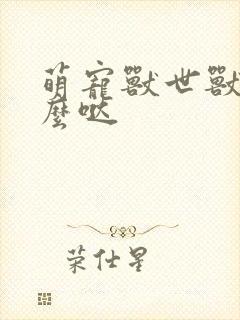 萌寵獸世獸
麼噠
荣仕星